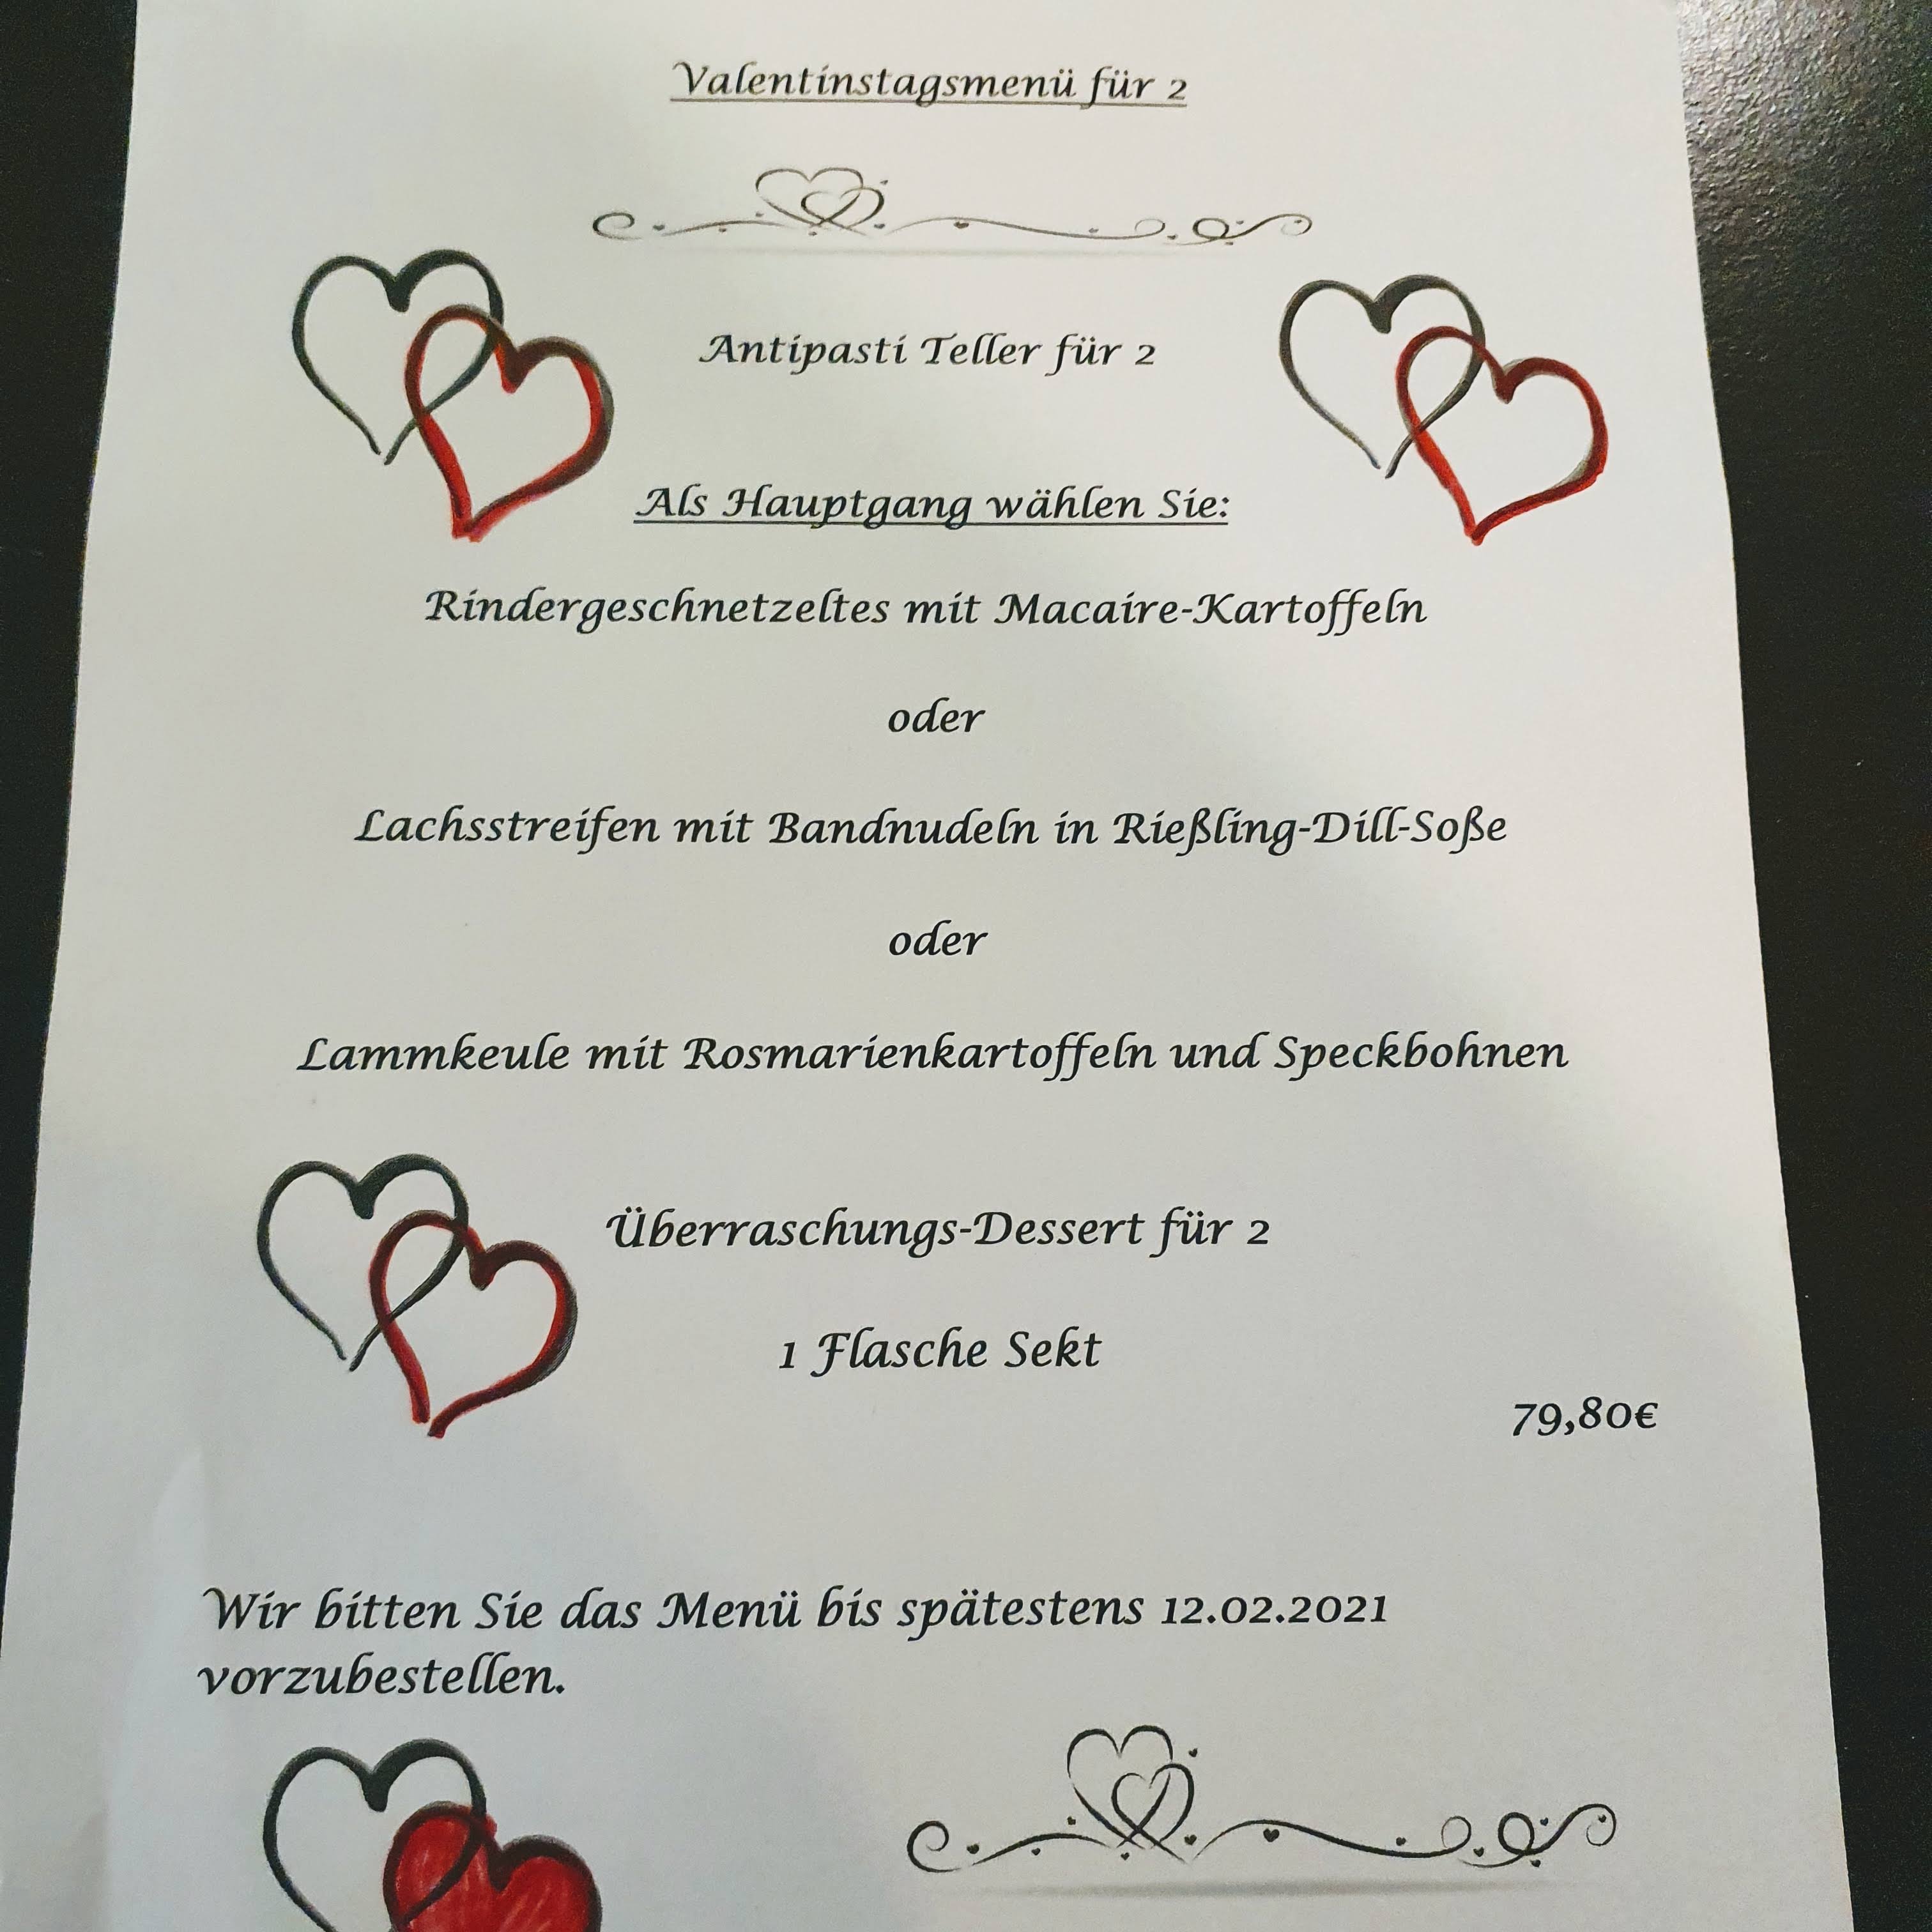 Valentinstagsmenü für 2
Antipasti Teller für 2
Als Hauptgang wählen Sie:
Rindergeschnetzeltes mit Macaire-Kartoffeln
oder
Lachsstreifen mit Bandnudeln in Rießling-Dill-Soße
oder
Lammkeule mit Rosmarienkartoffeln und Speckbohnen
Überraschungs-Dessert für 2
1 Flasche Sekt
79,80€
Wir bitten Sie das Menü bis spätestens 12.02.2021
vorzubestellen.